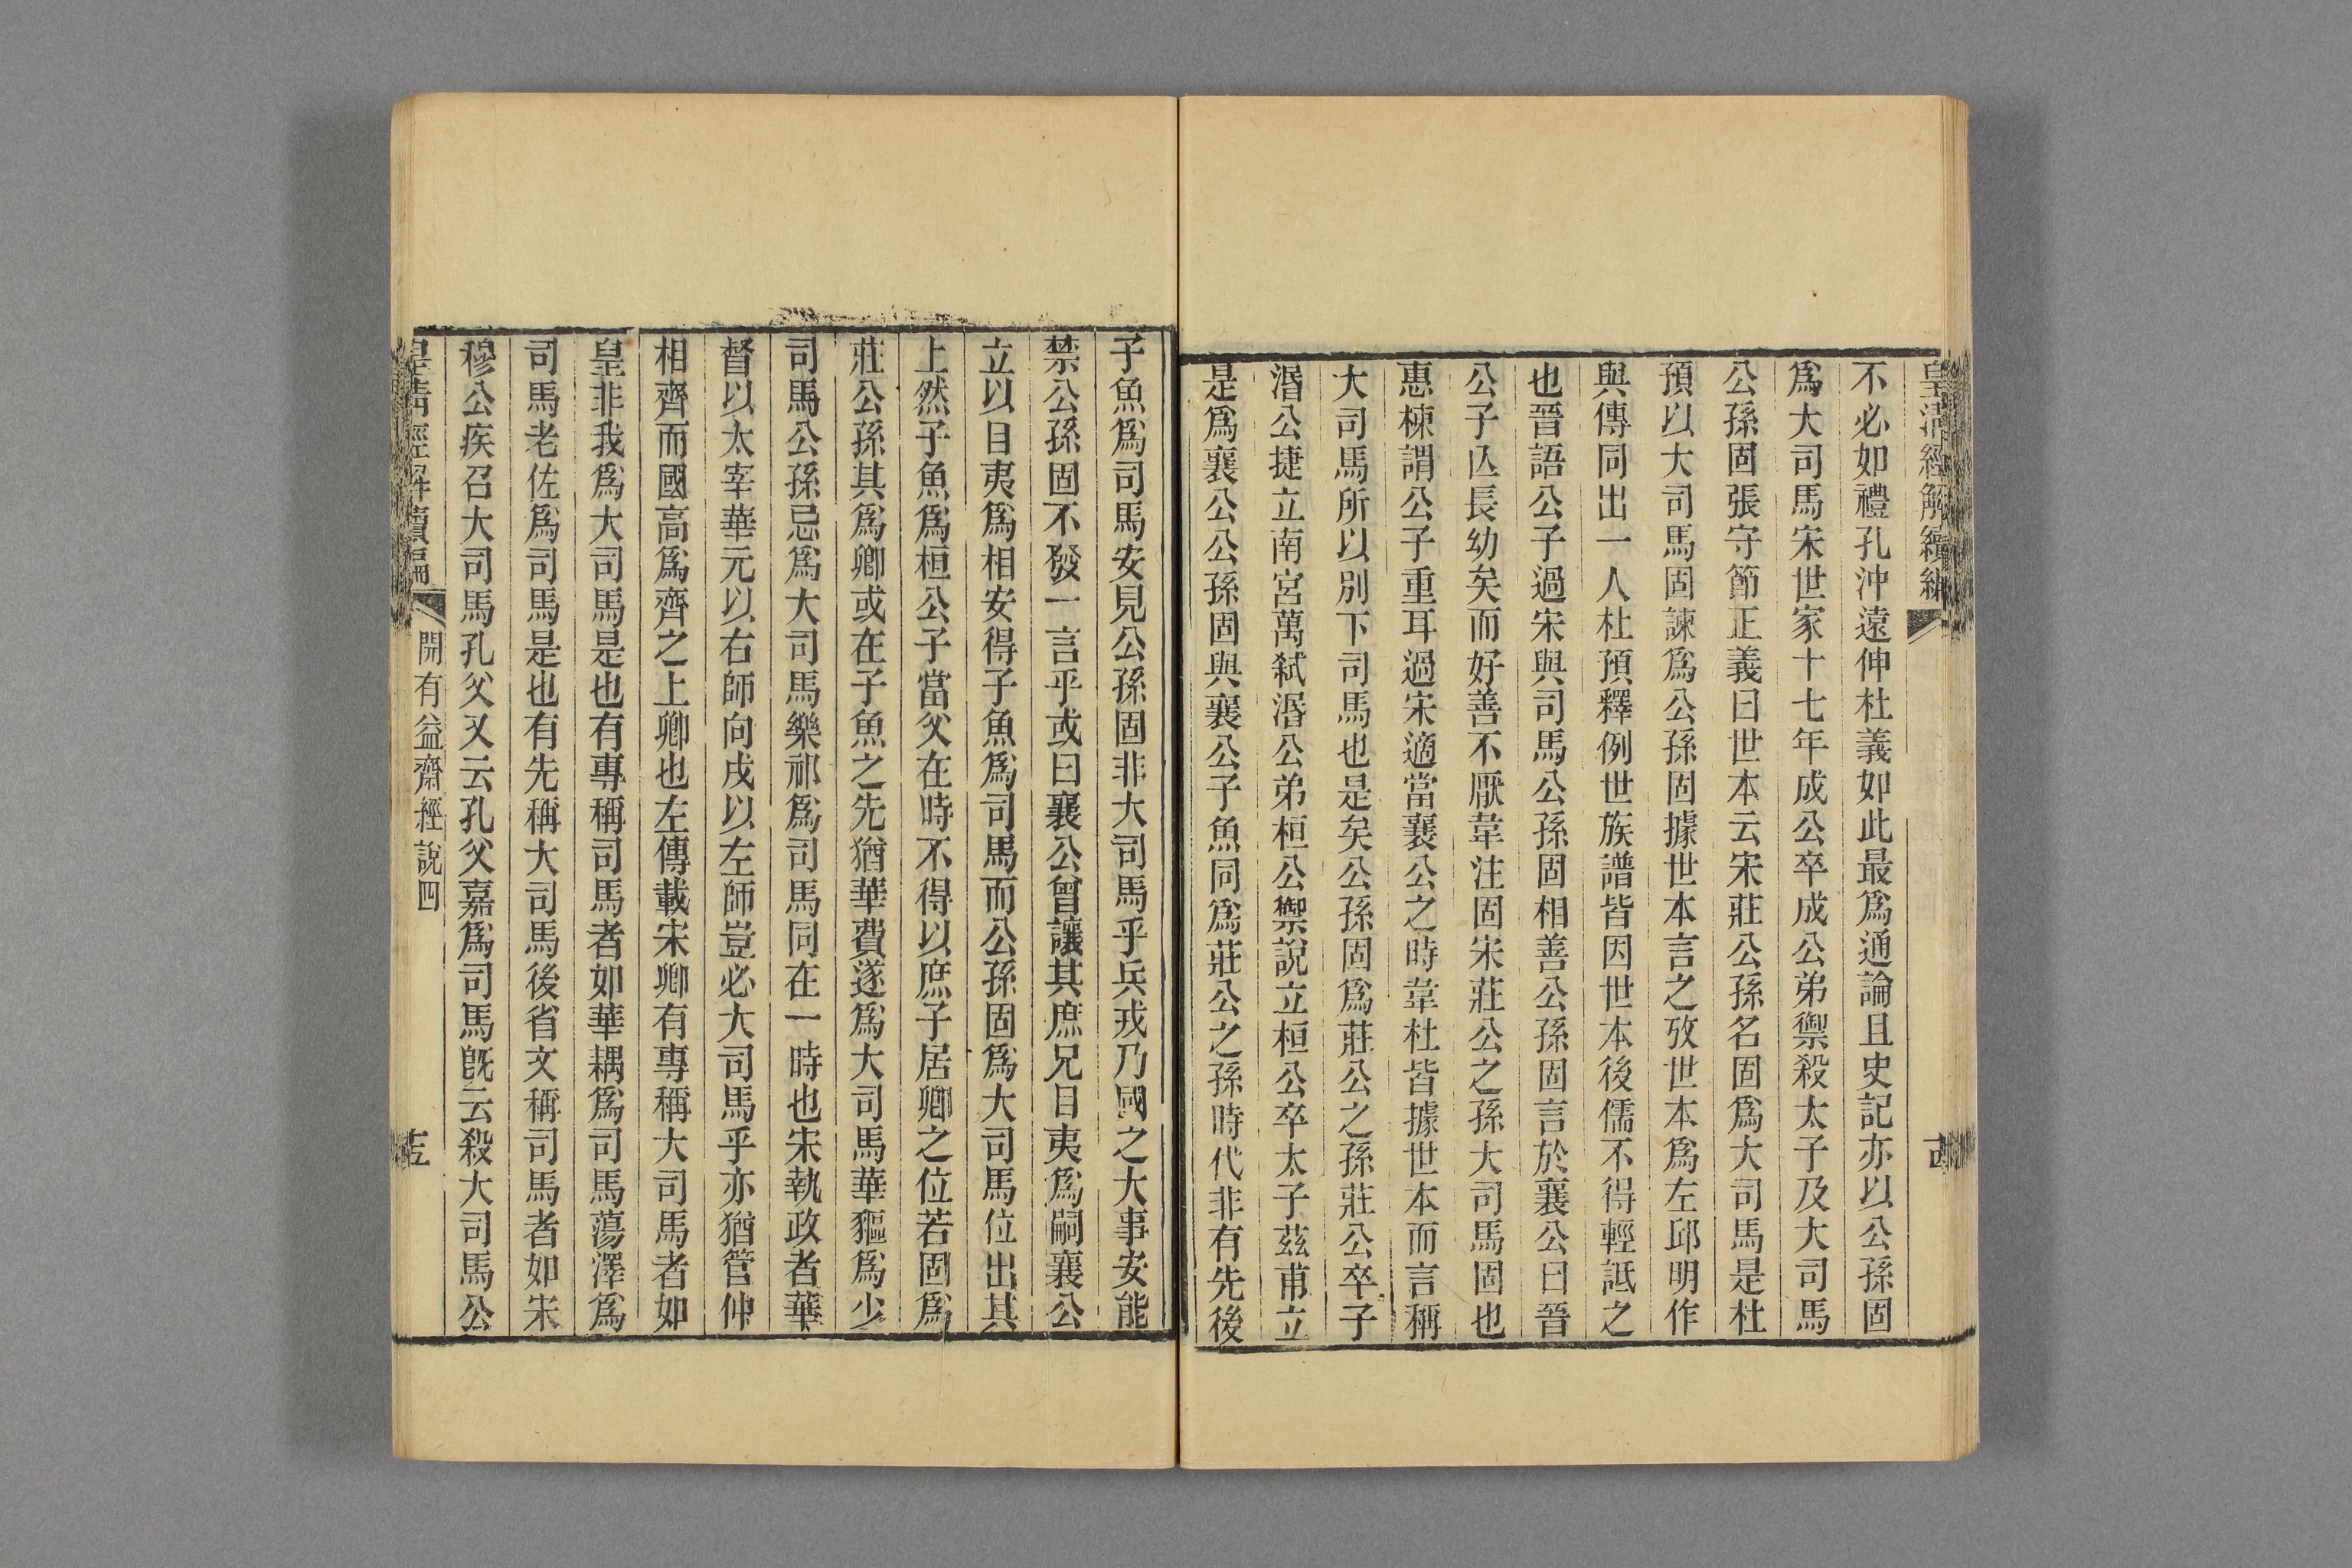 皇清經解續編
不必如禮孔沖遠伸杜義如此最爲通論且史記亦以公孫固
爲大司馬宋世家十七年成公卒成公弟禦殺太子及大司馬
公孫固張守節正義曰世本云宋莊公孫名固爲大司馬是杜
預以大司馬固諫爲公孫固據世本言之攷世本爲左邱明作
與傳同出一人杜預釋例世族譜皆因世本後儒不得輕詆之
也晉語公子過宋與司馬公孫固相善公孫固言於襄公曰晉
公子亾長幼矣而好善不厭韋注固宋莊公之孫大司馬固也
惠棟謂公子重耳過宋適當襄公之時韋杜皆據世本而言稱
大司馬所以別下司馬也是矣公孫固爲莊公之孫莊公卒子
湣公捷立南宮萬弒湣公弟桓公禦說立桓公卒太子茲甫立
是爲襄公公孫固與襄公子魚同爲莊公之孫時代非有先後
子魚爲司馬安見公孫固非大司馬乎兵戎乃國之大事安能
禁公孫固不發一言乎或曰襄公曾讓其庶兄目夷爲嗣襄公
立以目夷爲相安得子魚爲司馬而公孫固爲大司馬位出其
上然子魚爲桓公子當父在時不得以庶子居卿之位若固爲
莊公孫其爲卿或在子魚之先猶華費遂爲大司馬華貙爲少
司馬公孫忌爲大司馬樂祁爲司馬同在一時也宋執政者華
督以太宰華元以右師向戌以左師豈必大司馬乎亦猶管仲
相齊而國高爲齊之上卿也左傳載宋卿有專稱大司馬者如
皇非我爲大司馬是也有專稱司馬者如華耦爲司馬蕩澤爲
司馬老佐爲司馬是也有先稱大司馬後省文稱司馬者如宋
穆公疾召大司馬孔父又云孔父嘉爲司馬旣云殺大司馬公
皇清經解續編 開有益齋經說四 十五